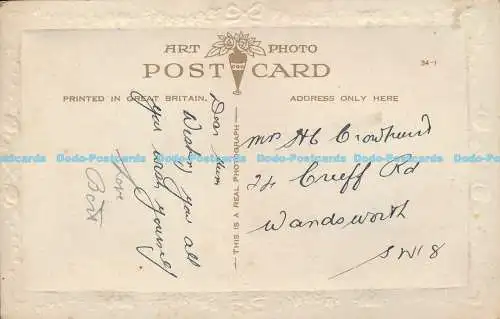 ART PHOTO
POST CARD
34-1
PRINTED IN GREAT BRITAIN.
ADDRESS ONLY HERE
THIS IS A REAL PHOTOGRAPH
Dear Mum
Wishing you all
you wish yourself
Love
Bert
Mrs H C Crowhurst
24 Crieff Rd
Wandsworth
SW18
Dodo-Postcards Dodo-Postcards Dodo-Postcards Dodo-Postcards Dodo-Postcards